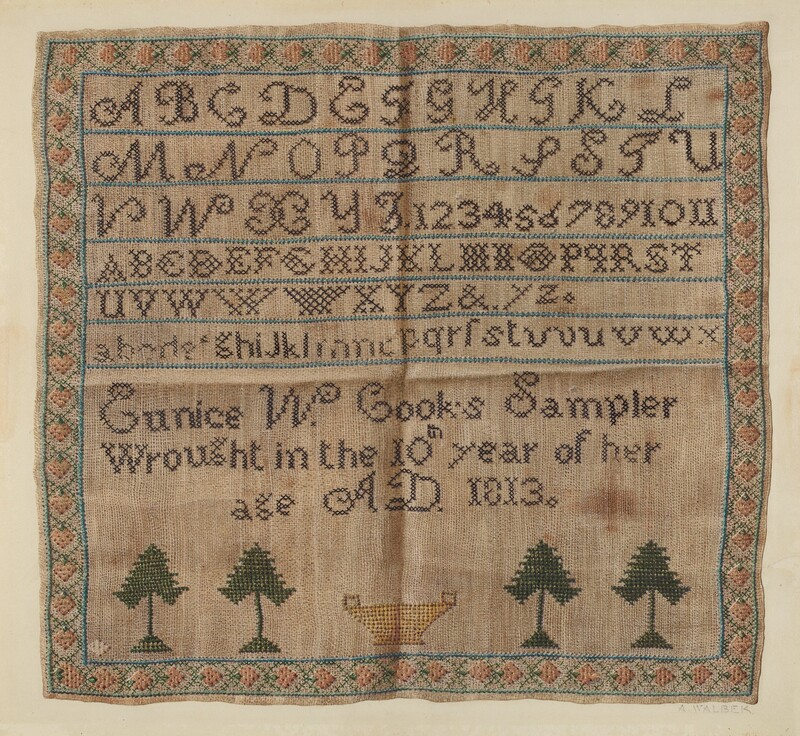 A B C D E F G H G K L
M N O P Q R S S T U
V W X Y Z 1 2 3 4 5 6 7 8 9 10 11
A B C D E F G H I J K L M N O P Q R S T
U V W X Y Z & . y z .
a b c d e f g h i j k l m n o p q r ſ s t u v w x
Eunice W. Cook's Sampler
Wrought in the 10th year of her
age A D 1813.
A. WALBEK